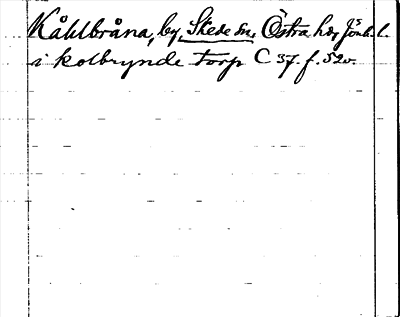 Kåhlbråna, by, Skede sn. Östra hd, Jönk. l.
i kolbrynde torp C 37. f. 52v.